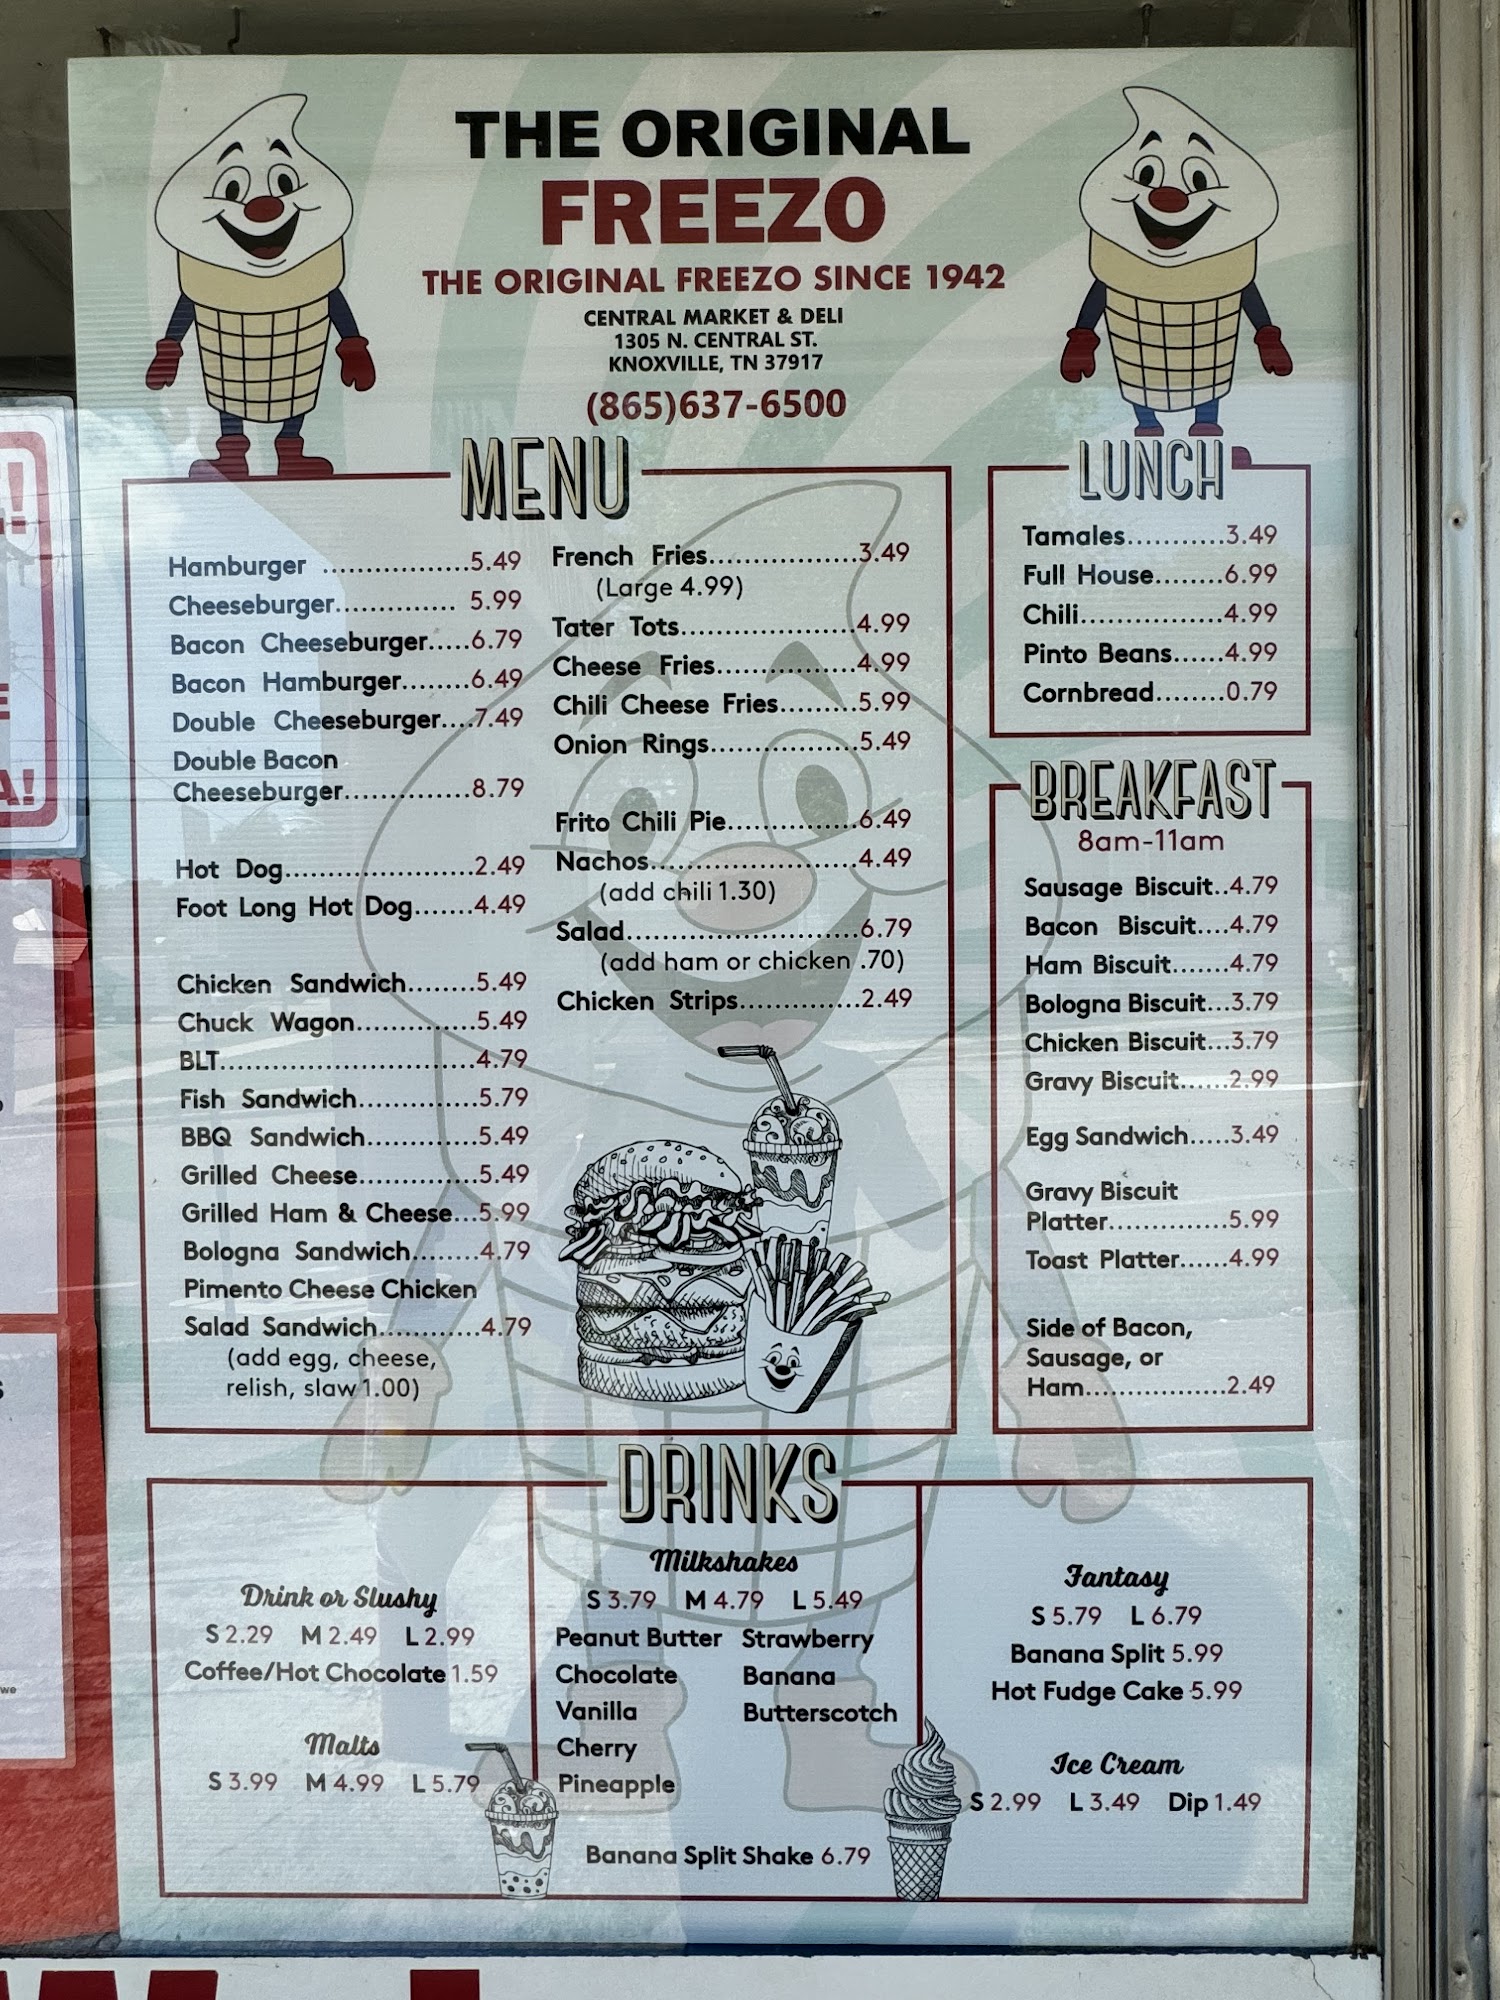 THE ORIGINAL
FREEZO
THE ORIGINAL FREEZO SINCE 1942
CENTRAL MARKET & DELI
1305 N. CENTRAL ST.
KNOXVILLE, TN 37917
(865)637-6500
MENU
Hamburger ..................5.49
Cheeseburger.............. 5.99
Bacon Cheeseburger.....6.79
Bacon Hamburger........6.49
Double Cheeseburger....7.49
Double Bacon
Cheeseburger...............8.79
Hot Dog.......................2.49
Foot Long Hot Dog.......4.49
Chicken Sandwich........5.49
Chuck Wagon..............5.49
BLT...............................4.79
Fish Sandwich..............5.79
BBQ Sandwich.............5.49
Grilled Cheese..............5.49
Grilled Ham & Cheese...5.99
Bologna Sandwich........4.79
Pimento Cheese Chicken
Salad Sandwich............4.79
(add egg, cheese,
relish, slaw 1.00)
French Fries..................3.49
(Large 4.99)
Tater Tots.....................4.99
Cheese Fries.................4.99
Chili Cheese Fries.........5.99
Onion Rings..................5.49
Frito Chili Pie................6.49
Nachos.........................4.49
(add chili 1.30)
Salad............................6.79
(add ham or chicken .70)
Chicken Strips..............2.49
LUNCH
Tamales...........3.49
Full House........6.99
Chili.................4.99
Pinto Beans......4.99
Cornbread........0.79
BREAKFAST
8am-11am
Sausage Biscuit..4.79
Bacon Biscuit....4.79
Ham Biscuit.......4.79
Bologna Biscuit...3.79
Chicken Biscuit...3.79
Gravy Biscuit......2.99
Egg Sandwich.....3.49
Gravy Biscuit
Platter...............5.99
Toast Platter......4.99
Side of Bacon,
Sausage, or
Ham..................2.49
DRINKS
Drink or Slushy
S 2.29 M 2.49 L 2.99
Coffee/Hot Chocolate 1.59
Malts
S 3.99 M 4.99 L 5.79
Milkshakes
S 3.79 M 4.79 L 5.49
Peanut Butter Strawberry
Chocolate Banana
Vanilla Butterscotch
Cherry
Pineapple
Banana Split Shake 6.79
Fantasy
S 5.79 L 6.79
Banana Split 5.99
Hot Fudge Cake 5.99
Ice Cream
S 2.99 L 3.49 Dip 1.49